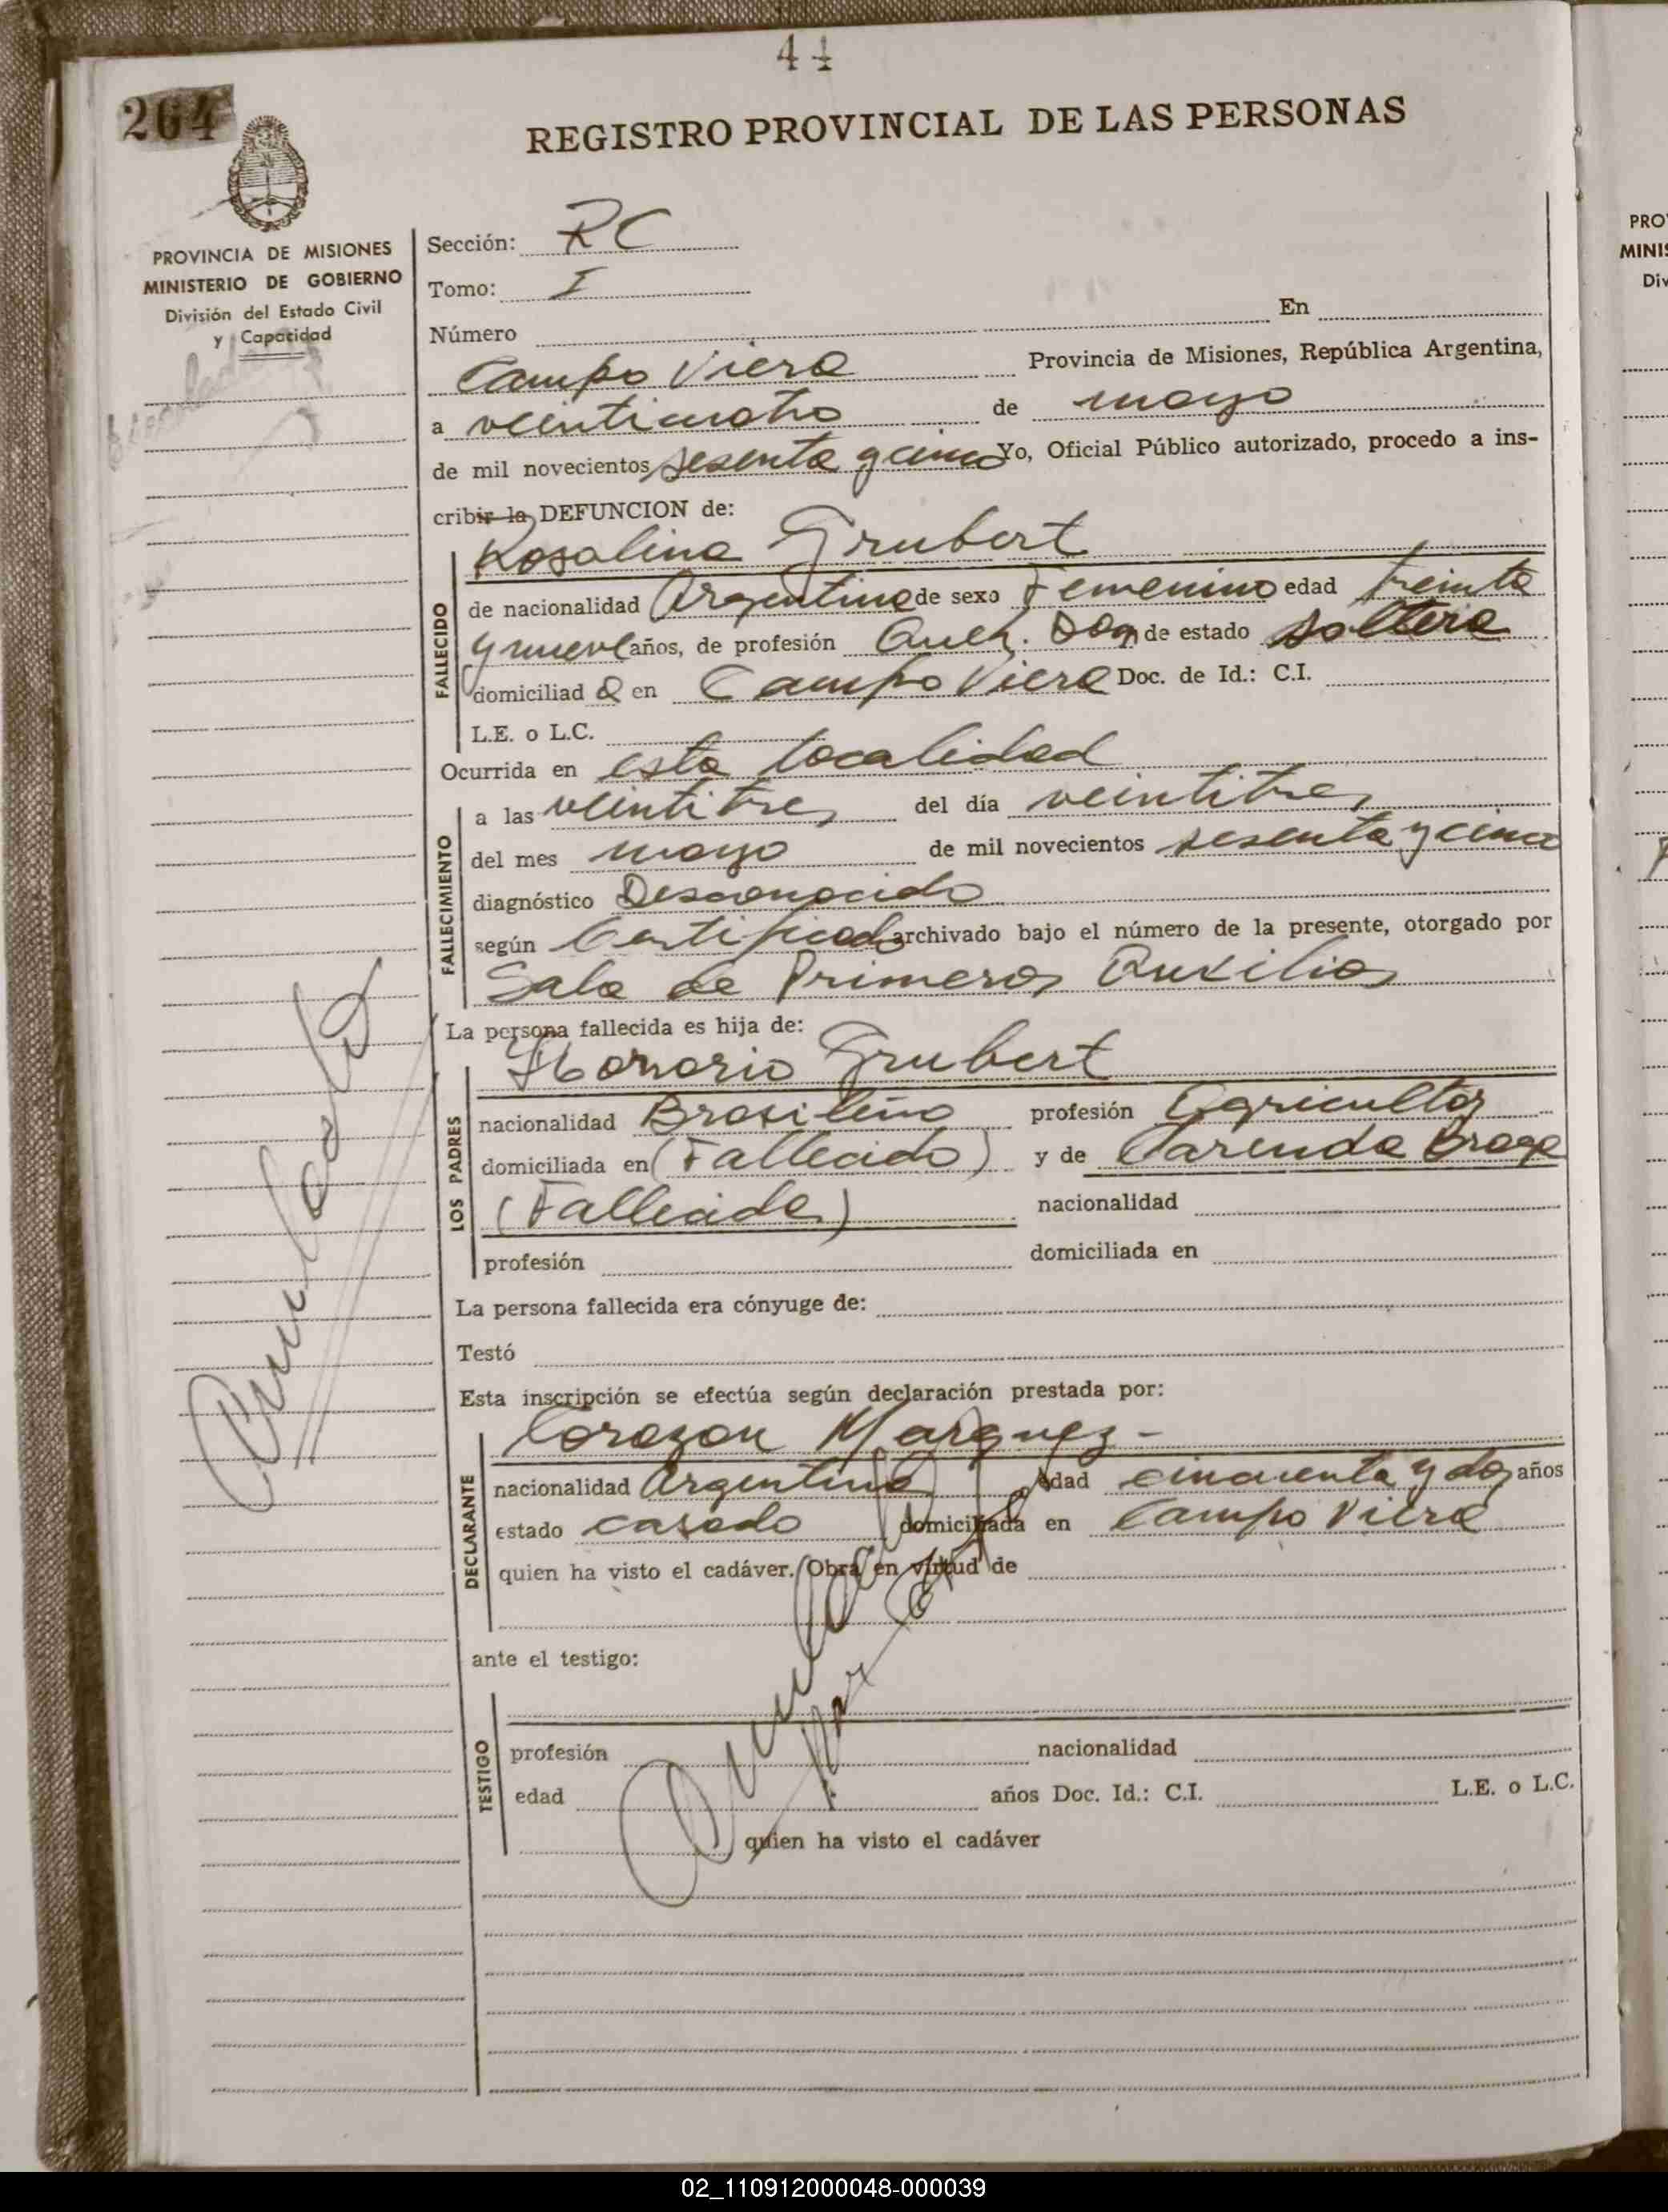 44
264
REGISTRO PROVINCIAL DE LAS PERSONAS
PROVINCIA DE MISIONES
MINISTERIO DE GOBIERNO
División del Estado Civil
y Capacidad
Sección: RC
Tomo: I
Número En
Campo Viera Provincia de Misiones, República Argentina,
a veinticuatro de mayo
de mil novecientos sesenta y cinco Yo, Oficial Público autorizado, procedo a ins-
cribir la DEFUNCION de:
Rosalina Grubert
FALLECIDO
de nacionalidad Argentina de sexo Femenino edad treinta
y nueve años, de profesión Queh. Dom de estado soltera
domiciliad a en Campo Viera Doc. de Id.: C.I.
L.E. o L.C.
Ocurrida en esta localidad
FALLECIMIENTO
a las veintitres del día veintitres
del mes mayo de mil novecientos sesenta y cinco
diagnóstico Desconocido
según Certificado archivado bajo el número de la presente, otorgado por
Sala de Primeros Auxilios
La persona fallecida es hija de:
Honorio Grubert
LOS PADRES
nacionalidad Brasileño profesión Agricultor
domiciliada en (Fallecido) y de Carenda Braga
(Fallecida) nacionalidad
profesión domiciliada en
La persona fallecida era cónyuge de:
Testó
Esta inscripción se efectúa según declaración prestada por:
Corazon Marquez -
DECLARANTE
nacionalidad Argentina edad cincuenta y dos años
estado casado domiciliada en Campo Viera
quien ha visto el cadáver. Obra en virtud de
ante el testigo:
TESTIGO
profesión nacionalidad
edad años Doc. Id.: C.I. L.E. o L.C.
quien ha visto el cadáver
Anulado
Anulado
PRO
MINIS
Div
02_110912000048-000039